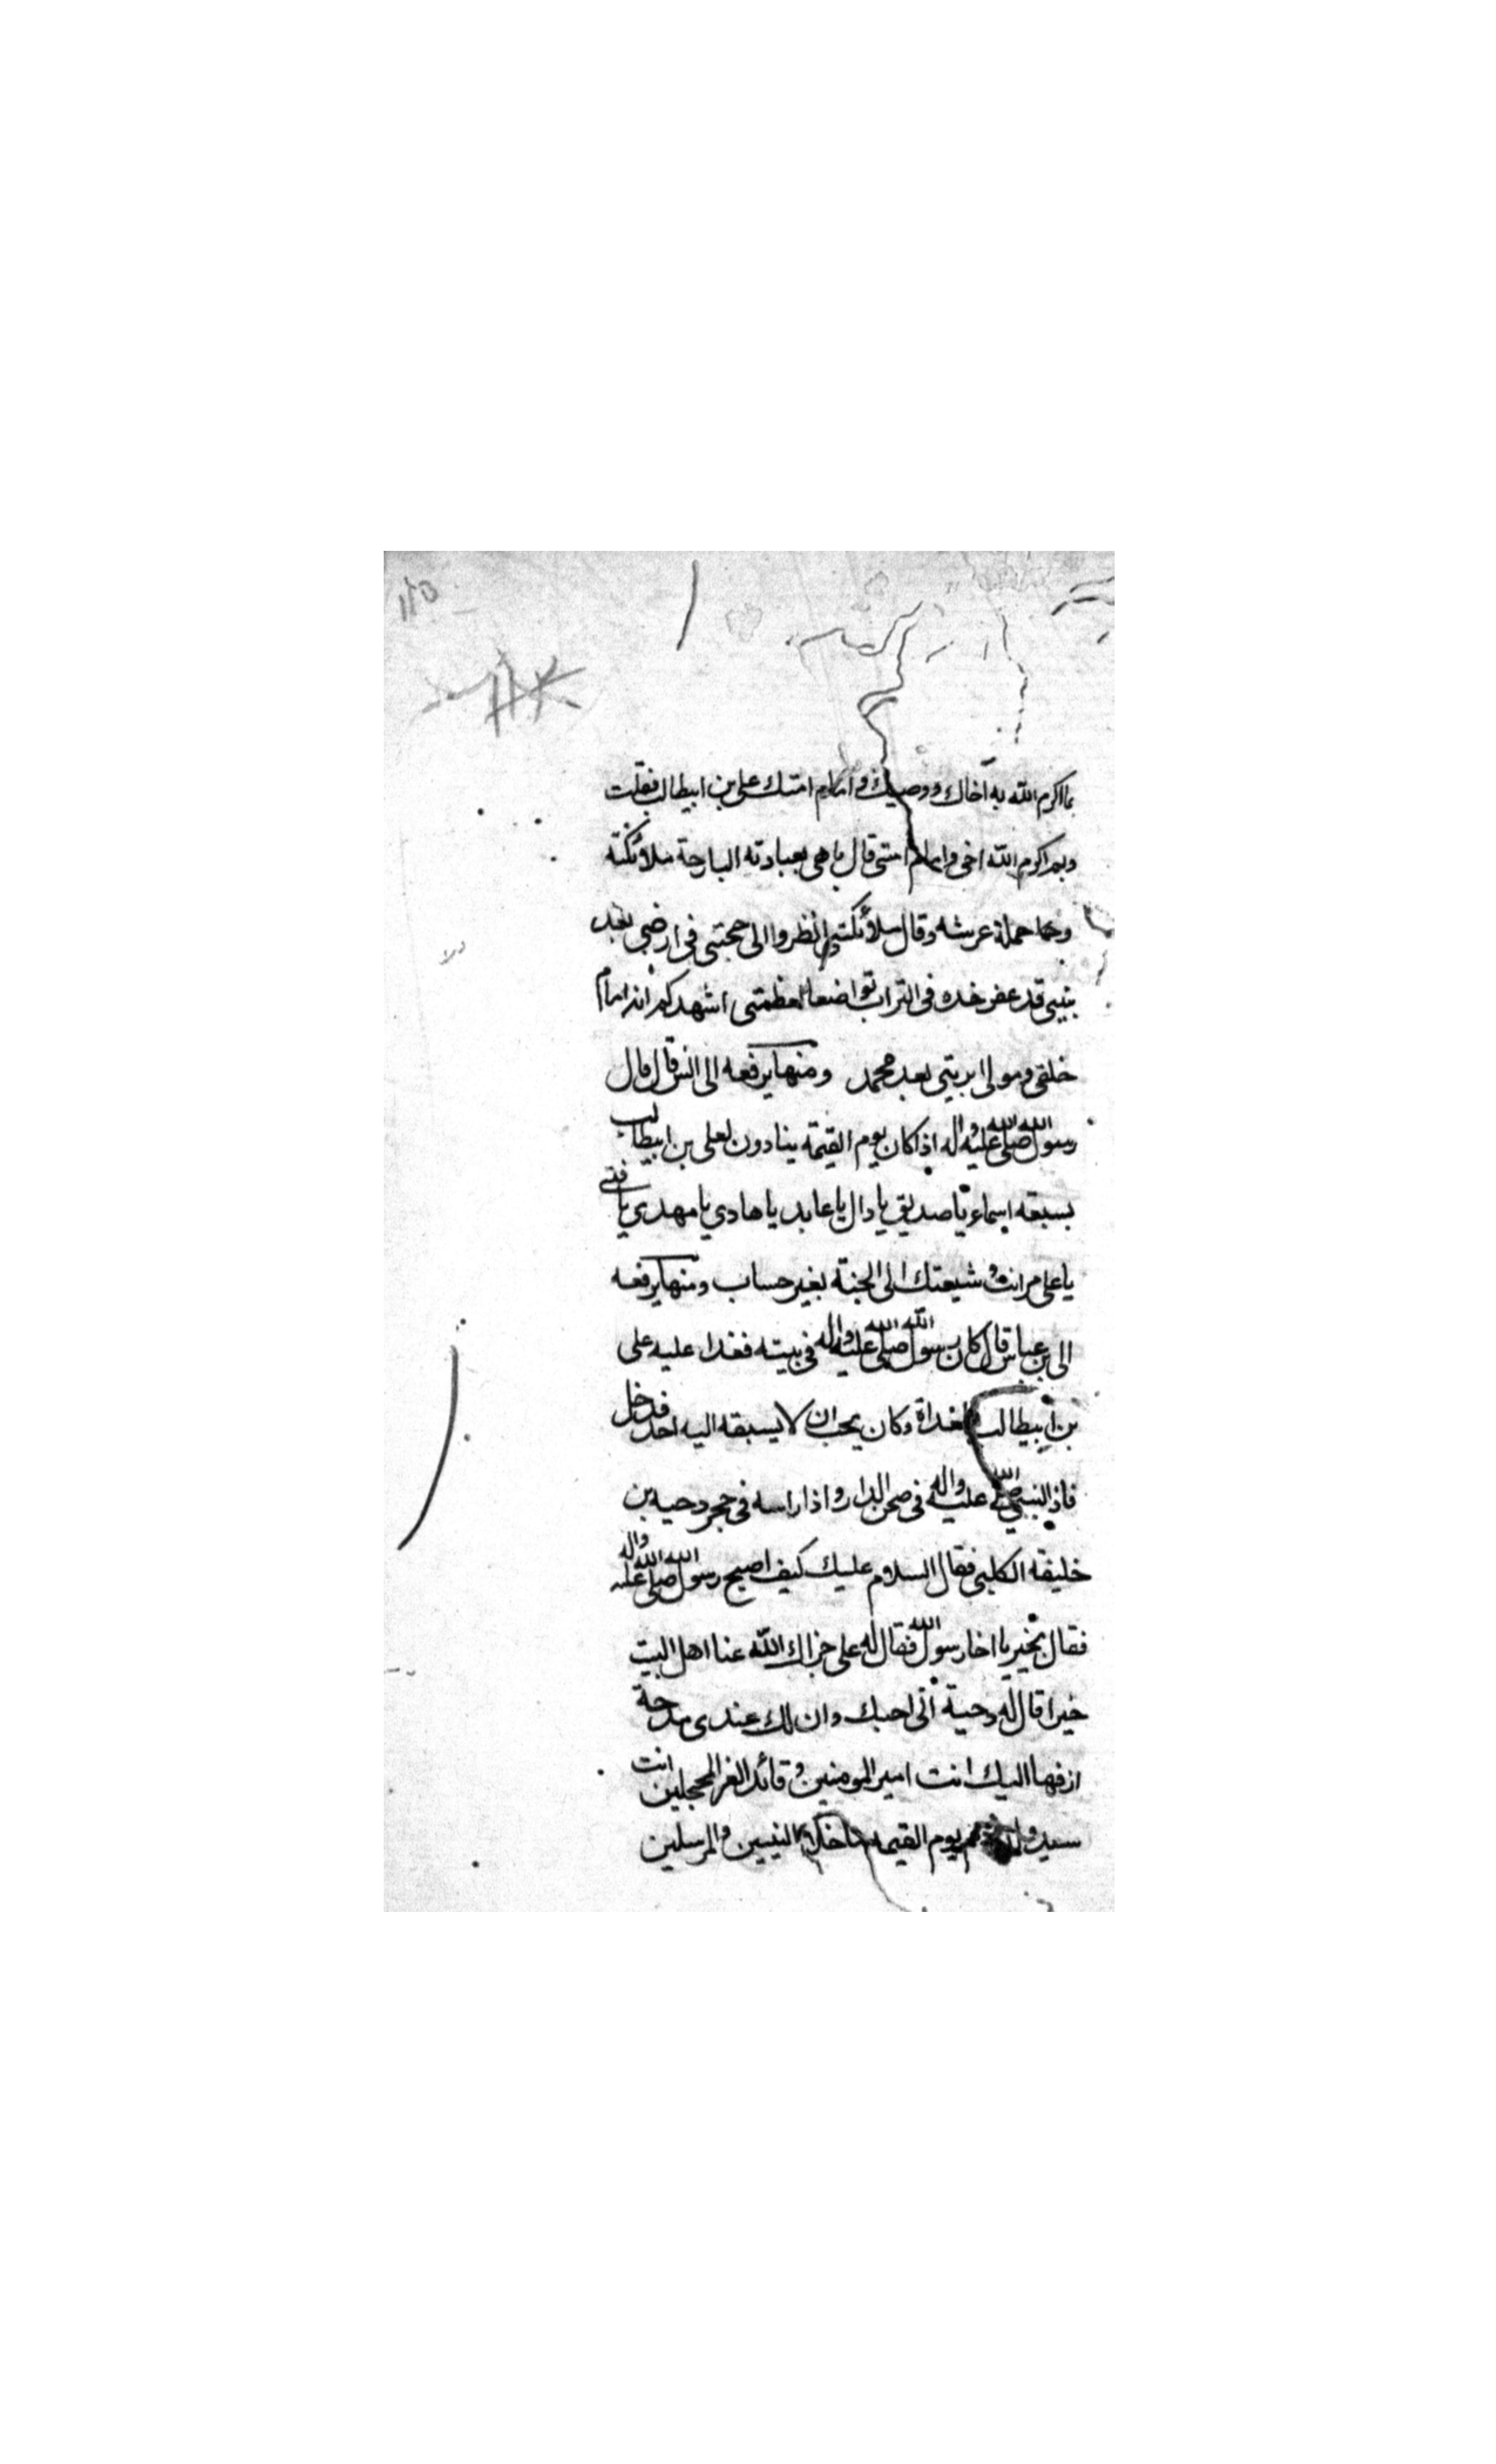 بما اكرم الله به اخاك ووصيك وامام امتك علي بن ابيطالب فقلت
وبم اكرم الله اخي وامام امتي قال باهى بعبادته البارحة ملائكته
وحملة عرشه وقال ملائكتي انظروا الى حجتي في ارضي بعد
نبيي قد عفر خده في التراب تواضعا لعظمتي اشهدكم انه امام
خلقي ومولى بريتي بعد محمد ومنها يرفعه الى انس قال قال
رسول الله صلى الله عليه واله اذا كان يوم القيمة ينادون لعلي بن ابيطالب
بسبعة اسماء يا صديق يا دال يا عابد يا هادي يا مهدي يا فتى
يا علي مر انت وشيعتك الى الجنة بغير حساب ومنها يرفعه
الى بن عباس قال كان رسول الله صلى الله عليه واله في بيته فغدا عليه علي
بن ابيطالب الغداة وكان يحب ان لا يسبقه اليه احد فدخل
فاذ النبي صلى الله عليه واله في صحن الدار واذا راسه في حجر دحيه بن
خليفة الكلبي فقال السلام عليك كيف اصبح رسول الله صلى الله عليه واله
فقال بخير يا اخا رسول الله فقال له علي جزاك الله عنا اهل البيت
خيرا قال له دحية اني احبك وان لك عندي مدحة
ازفها اليك انت امير المومنين وقائد الغر المحجلين انت
سيد ولد يوم القيمه ما خلا النبيين والمرسلين